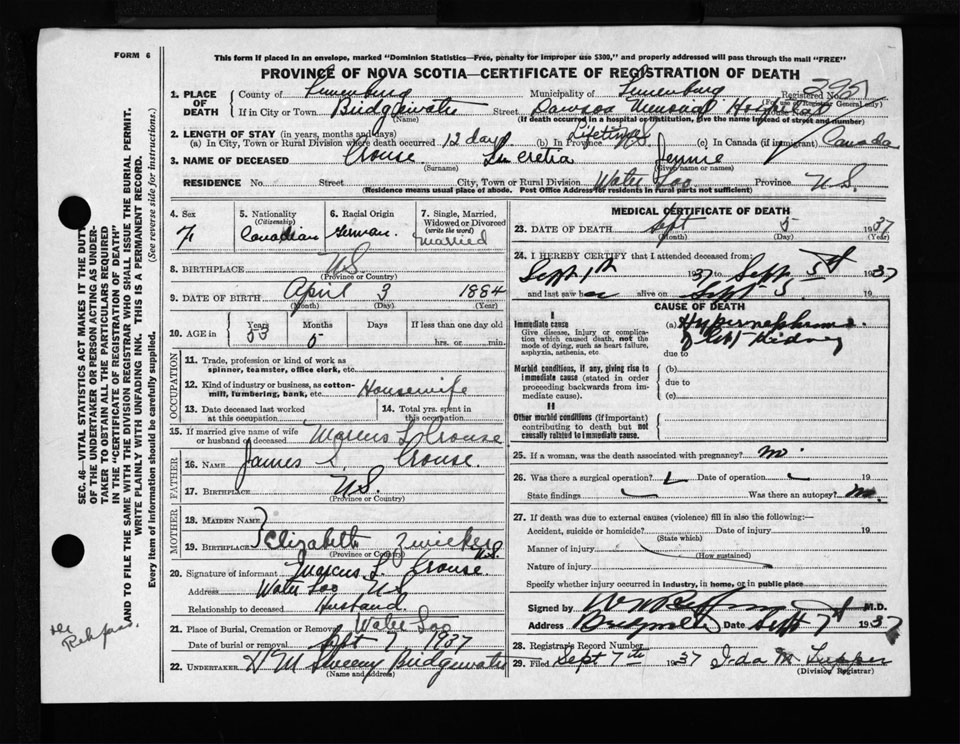 FORM 6
This form if placed in an envelope, marked "Dominion Statistics—Free, penalty for improper use $300," and properly addressed will pass through the mail "FREE"
PROVINCE OF NOVA SCOTIA—CERTIFICATE OF REGISTRATION OF DEATH
1. PLACE OF DEATH
County of Lunenburg Municipality of Lunenburg Registered No.
(For use of Registrar General only)
If in City or Town Bridgewater Street Dawson Memorial Hospital
(Name) (If death occurred in a hospital or institution, give the name instead of street and number)
2. LENGTH OF STAY (in years, months and days)
(a) In City, Town or Rural Division where death occurred 12 days (b) In Province Lifetime (c) In Canada (if immigrant) Canada
3. NAME OF DECEASED Crouse Lucretia Jennie
(Surname) (Given name or names)
RESIDENCE No. Street City, Town or Rural Division Water Loo Province N.S.
(Residence means usual place of abode. Post Office Address for residents in rural parts not sufficient)
4. Sex F
5. Nationality (Citizenship) Canadian
6. Racial Origin German.
7. Single, Married, Widowed or Divorced (write the word) Married
8. BIRTHPLACE N S
(Province or Country)
9. DATE OF BIRTH April 3 1884
(Month) (Day) (Year)
10. AGE in Years Months 5 Days If less than one day old
hrs. or min.
OCCUPATION
11. Trade, profession or kind of work as spinner, teamster, office clerk, etc.
12. Kind of industry or business, as cotton-mill, lumbering, bank, etc. Housewife
13. Date deceased last worked at this occupation
14. Total yrs. spent in this occupation
15. If married give name of wife or husband of deceased Marcus L Crouse
FATHER
16. NAME James Crouse.
17. BIRTHPLACE N.S.
(Province or Country)
MOTHER
18. MAIDEN NAME
19. BIRTHPLACE Elizabeth Zwicker N.S.
(Province or Country)
20. Signature of informant Marcus L. Crouse.
Address Water Loo N S
Relationship to deceased Husband.
21. Place of Burial, Cremation or Removal Water Loo
Date of burial or removal Sept 7 1937
22. UNDERTAKER H M Sweeny Bridgewater
(Name and address)
MEDICAL CERTIFICATE OF DEATH
23. DATE OF DEATH Sept 5 1937
(Month) (Day) (Year)
24. I HEREBY CERTIFY that I attended deceased from:
Sept 1937 to Sept 5 1937
and last saw her alive on Sept 5. 19
CAUSE OF DEATH
I
Immediate cause
Give disease, injury or complication which caused death, not the mode of dying, such as heart failure, asphyxia, asthenia, etc
(a) Hypernephroma
of left Kidney
due to
Morbid conditions, if any, giving rise to immediate cause (stated in order proceeding backwards from immediate cause).
(b)
due to
(c)
II
Other morbid conditions (if important) contributing to death but not causally related to immediate cause.
25. If a woman, was the death associated with pregnancy? no.
26. Was there a surgical operation? Date of operation 19
State findings Was there an autopsy? no.
27. If death was due to external causes (violence) fill in also the following:—
Accident, suicide or homicide? Date of injury 19
(State which)
Manner of injury
(How sustained)
Nature of injury
Specify whether injury occurred in industry, in home, or in public place
Signed by M.D.
Address Bridgewater Date Sept 7 1937
28. Registrar's Record Number
29. Filed Sept 7th 1937 Ida M Tupper
(Division Registrar)
SEC. 46—VITAL STATISTICS ACT MAKES IT THE DUTY
OF THE UNDERTAKER OR PERSON ACTING AS UNDER-
TAKER TO OBTAIN ALL THE PARTICULARS REQUIRED
IN THE "CERTIFICATE OF REGISTRATION OF DEATH"
AND TO FILE THE SAME WITH THE DIVISION REGISTRAR WHO SHALL ISSUE THE BURIAL PERMIT.
WRITE PLAINLY WITH UNFADING INK. THIS IS A PERMANENT RECORD.
Every item of information should be carefully supplied. (See reverse side for instructions.)